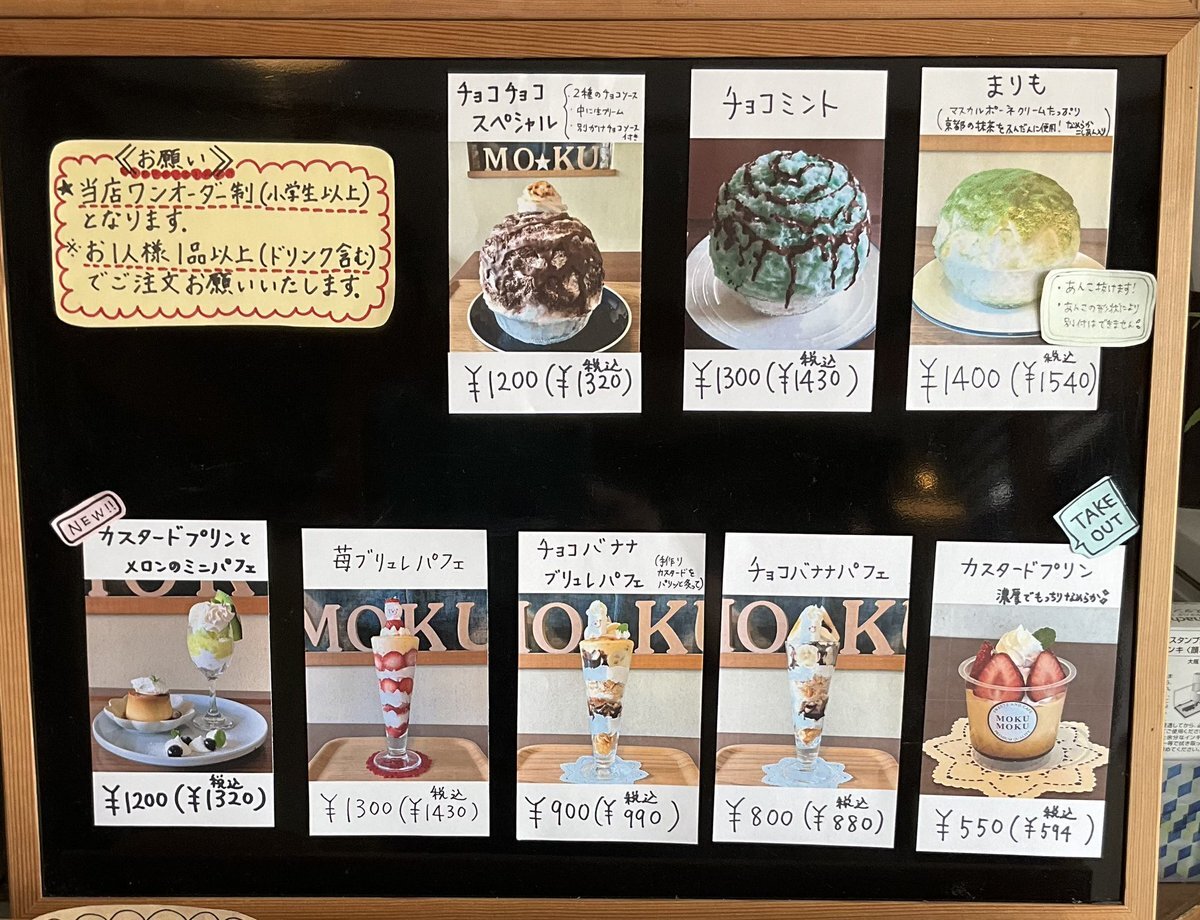 《お願い》
★当店ワンオーダー制(小学生以上)
となります。
※お1人様1品以上(ドリンク含む)
でご注文お願いいたします。
チョコチョコ
スペシャル
・2種のチョコソース
・中に生クリーム
・別がけチョコソース
付き
MO★KU
¥1200(税込¥1320)
チョコミント
¥1300(税込¥1430)
まりも
マスカルポーネクリームたっぷり
京都の抹茶をふんだんに使用!なめらか
こしあん入り
・あんこ抜けます!
・あんこの形状により
別付はできません。
¥1400(税込¥1540)
NEW!!
カスタードプリンと
メロンのミニパフェ
¥1200(税込¥1320)
苺ブリュレパフェ
MOKU
¥1300(税込¥1430)
チョコバナナ
ブリュレパフェ
(手作り
カスタードを
パリッと炙って)
MOKU
¥900(税込¥990)
チョコバナナパフェ
MOKU
¥800(税込¥880)
TAKE
OUT
カスタードプリン
濃厚でもっちりなめらか。
MOKU
MOKU
¥550(税込¥594)